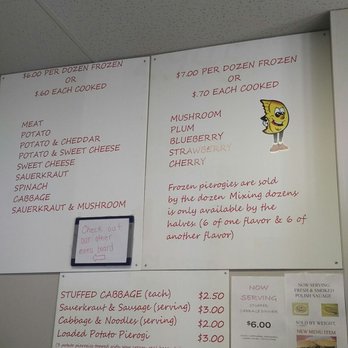 $6.00 PER DOZEN FROZEN
OR
$.60 EACH COOKED
MEAT
POTATO
POTATO & CHEDDAR
POTATO & SWEET CHEESE
SWEET CHEESE
SAUERKRAUT
SPINACH
CABBAGE
SAUERKRAUT & MUSHROOM
$7.00 PER DOZEN FROZEN
OR
$.70 EACH COOKED
MUSHROOM
PLUM
BLUEBERRY
STRAWBERRY
CHERRY
Frozen pierogies are sold
by the dozen. Mixing dozens
is only available by the
halves. (6 of one flavor & 6 of
another flavor)
Check out
our other
menu board
STUFFED CABBAGE (each) $2.50
Sauerkraut & Sausage (serving) $3.00
Cabbage & Noodles (serving) $2.00
Loaded Potato Pierogi $3.00
NOW
SERVING
STUFFED
CABBAGE DINNER
$6.00
NOW SERVING
FRESH & SMOKED
POLISH SAUSAGE
SOLD BY WEIGHT
NEW MENU ITEM